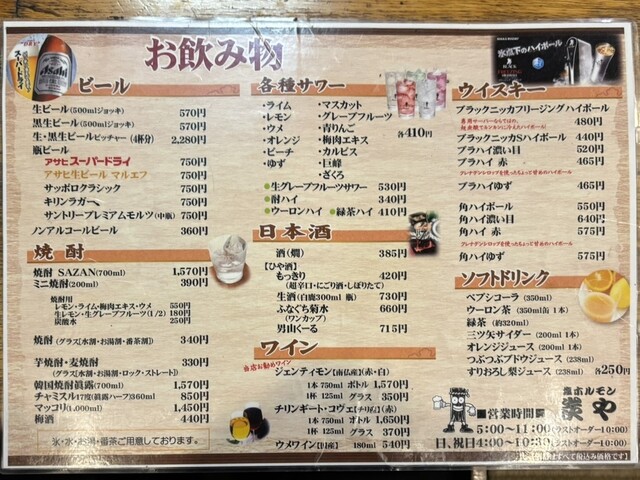 お飲み物
Asahi
スーパードライ
ビール
生ビール(500mlジョッキ) 570円
黒生ビール(500mlジョッキ) 570円
生・黒生ビールピッチャー(4杯分) 2,280円
瓶ビール
アサヒスーパードライ 750円
アサヒ生ビール マルエフ 750円
サッポロクラシック 750円
キリンラガー 750円
サントリープレミアムモルツ(中瓶) 750円
ノンアルコールビール 360円
焼酎
焼酎 SAZAN(700ml) 1,570円
ミニ焼酎(200ml) 390円
焼酎用
レモン・ライム・梅肉エキス・ウメ 550円
生レモン・生グレープフルーツ(1/2) 180円
炭酸水 250円
焼酎(グラス[水割・お湯割・番茶割]) 340円
芋焼酎・麦焼酎 330円
(グラス[水割・お湯割・ロック・ストレート])
韓国焼酎眞露(700ml) 1,570円
チャミスル47度(眞露ハーフ)360ml 850円
マッコリ(1,000ml) 1,450円
梅酒 440円
氷・水・お湯・番茶ご用意しております。
各種サワー
・ライム ・マスカット
・レモン ・グレープフルーツ
・ウメ ・青りんご
・オレンジ ・梅肉エキス
・ピーチ ・カルピス
・ゆず ・巨峰
・ざくろ
各410円
●生グレープフルーツサワー 530円
●酎ハイ 340円
●ウーロンハイ ●緑茶ハイ 410円
日本酒
酒(燗) 385円
【ひや酒】
もっきり 420円
(超辛口・にごり酒・しぼりたて)
生酒(白鹿300ml 瓶) 730円
ふなぐち菊水 660円
(ワンカップ)
男山くーる 715円
ワイン
当店お勧めワイン
ジェンティモン【南仏産】(赤・白)
1本 750ml ボトル 1,570円
1杯 125ml グラス 350円
チリンギート・コヴェ【チリ産】(赤)
1本 750ml ボトル 1,650円
1杯 125ml グラス 370円
ウメワイン【国産】 180ml 540円
氷点下のハイボール
ウイスキー
ブラックニッカフリージングハイボール 480円
専用サーバーならではの、
氷点下でキンキンに冷えたハイボール
ブラックニッカSハイボール 440円
ブラハイ濃い目 520円
ブラハイ 赤 465円
グレナデンシロップを使ったちょっと甘めのハイボール
ブラハイゆず 465円
角ハイボール 550円
角ハイ濃い目 640円
角ハイ 赤 575円
グレナデンシロップを使ったちょっと甘めのハイボール
角ハイゆず 575円
ソフトドリンク
ペプシコーラ (350ml)
ウーロン茶 (350ml缶 1本)
緑茶 (約320ml)
三ツ矢サイダー (200ml 1本)
オレンジジュース (200ml 1本)
つぶつぶブドウジュース (238ml)
すりおろし梨ジュース (238ml)
各250円
塩ホルモン
炭や
■営業時間■
5:00~11:00(ラストオーダー10:00)
日、祝日4:00~10:30(ラストオーダー10:00)
すべて税込み価格です